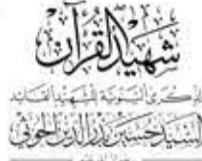 شهيد القرآن
الذكرى السنوية للشهيد القائد
السيد حسين بدر الدين الحوثي